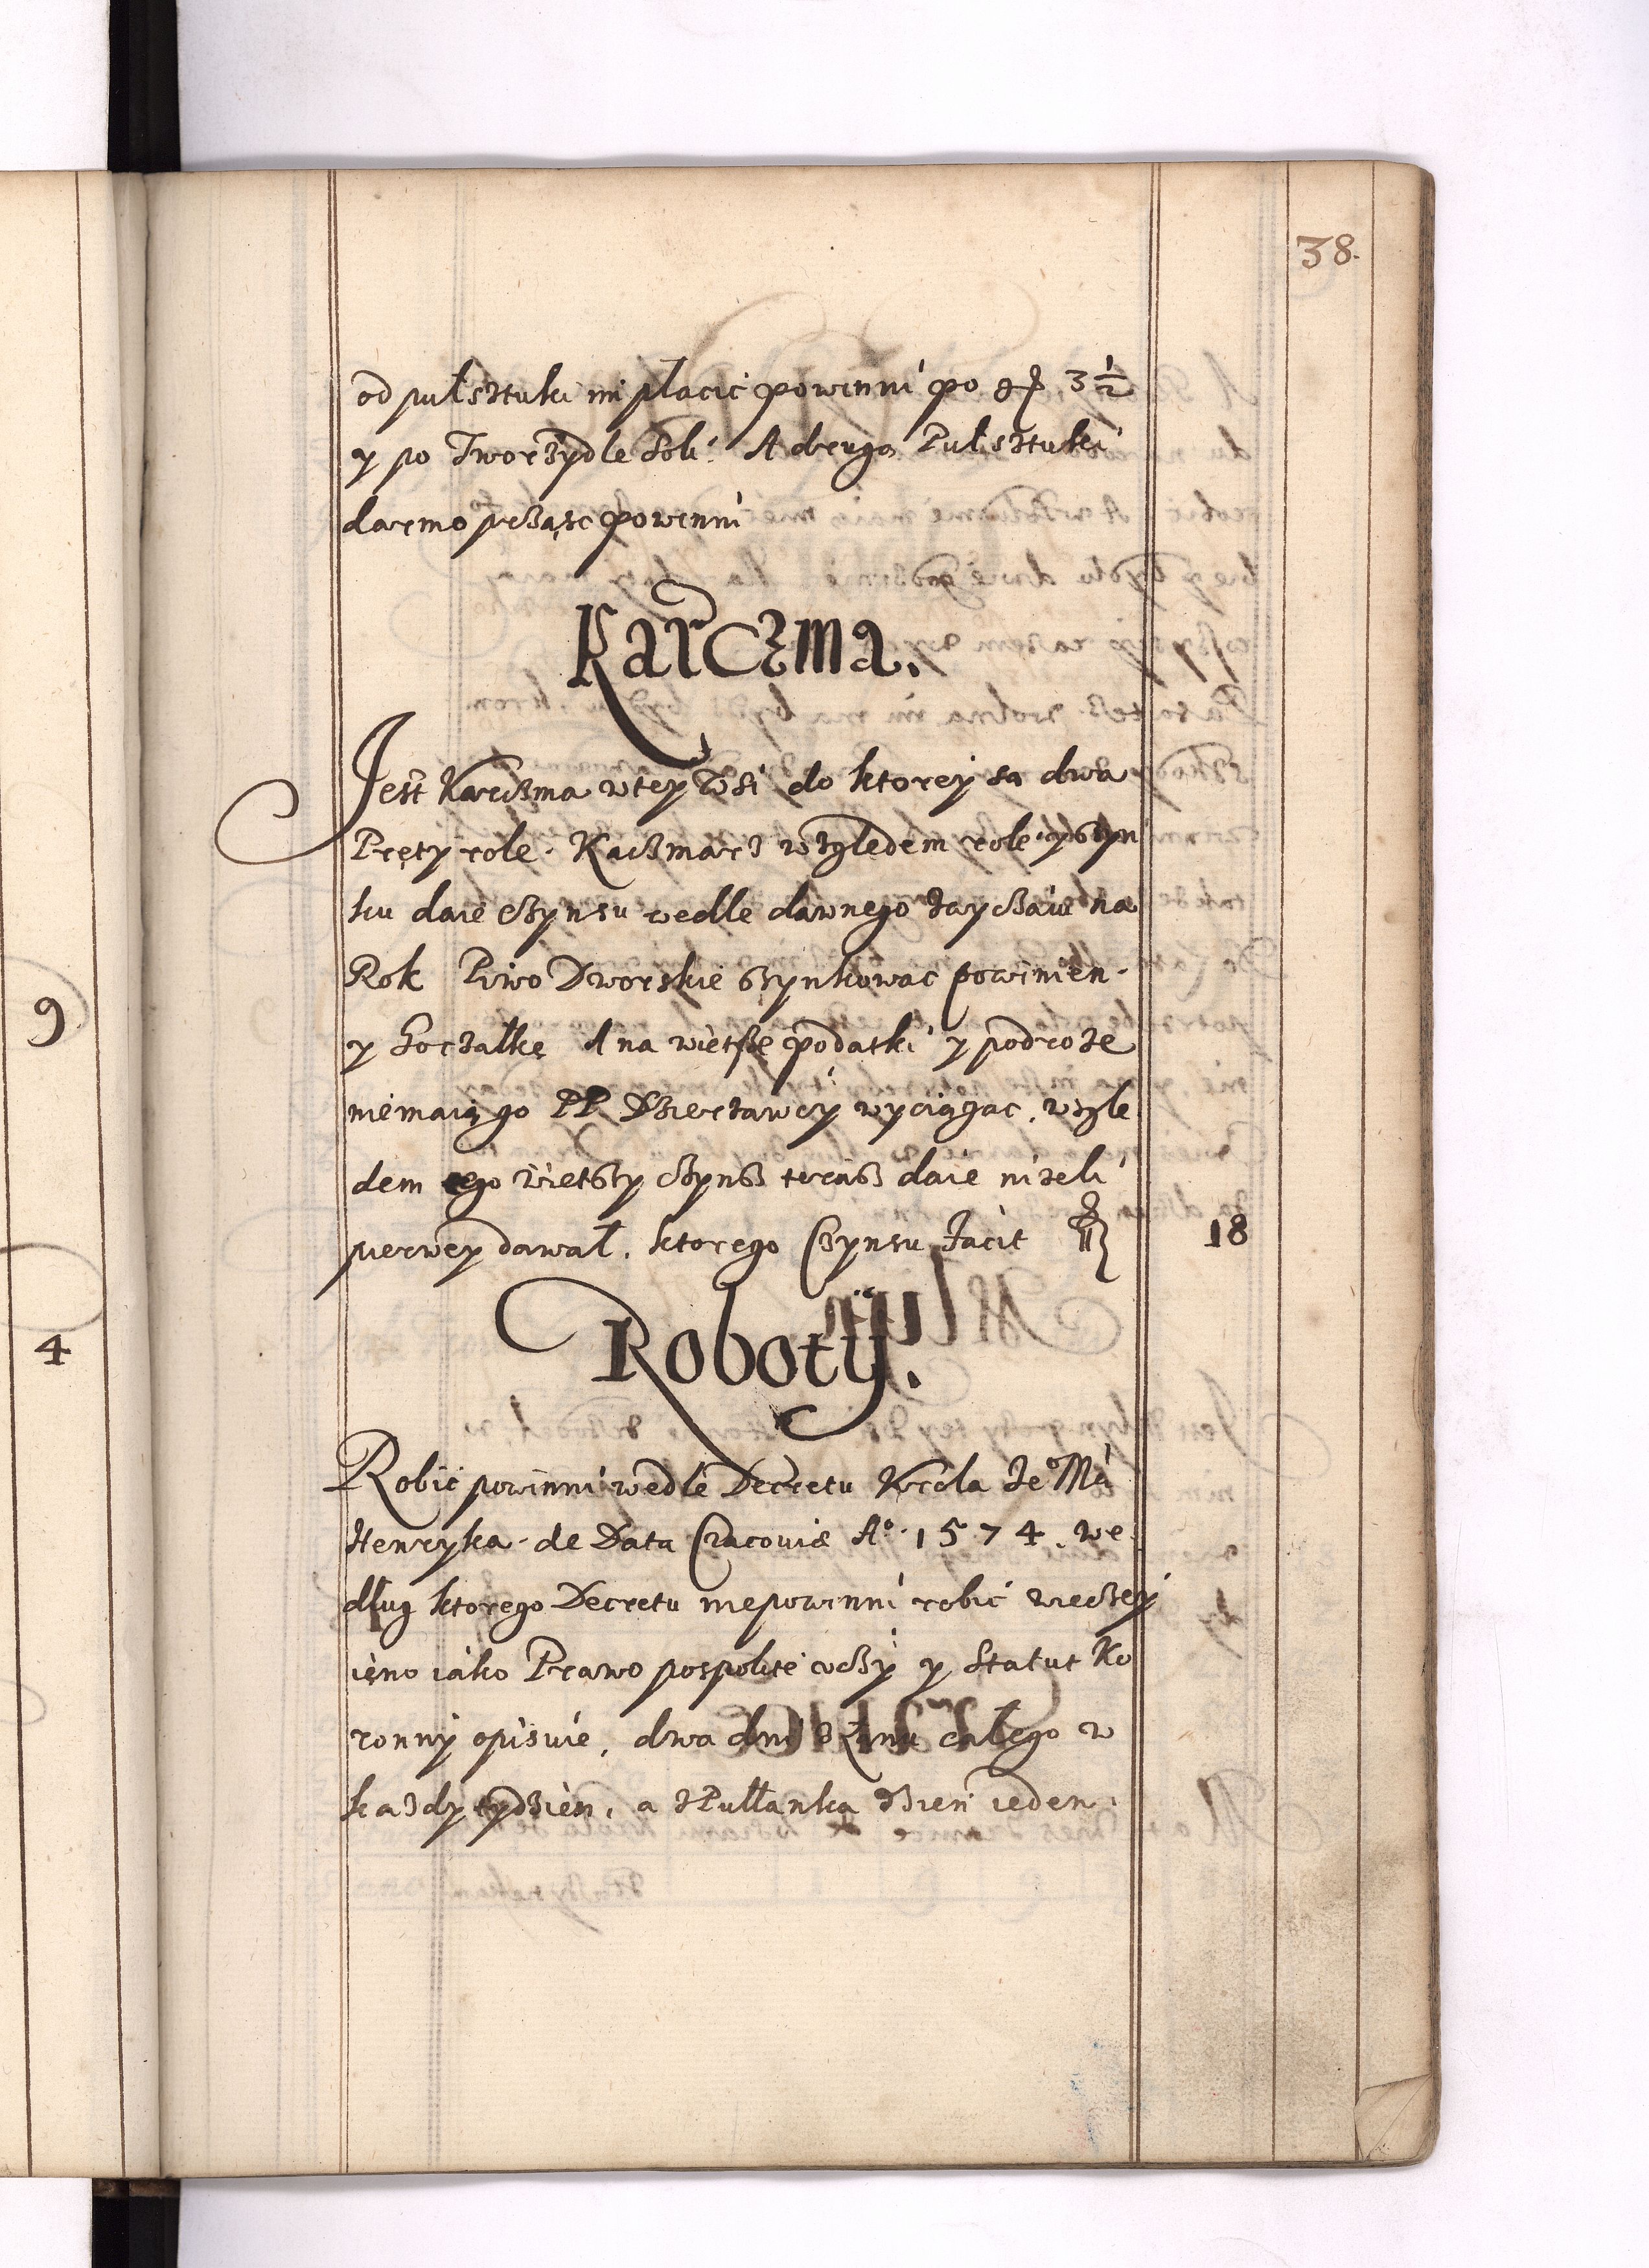 38.
od pułsztuki im płacic powinni po gr. 3 1/2
y po Tworzydle Soli. A drugą Pułsztuki
darmo prząsc powinni
Karczma.
Jest Karczma w tey Wsi do ktorey są dwa
Pręty role. Kaczmarz względem role y szyn
ku daie czynsu wedle dawnego zwyczaiu na
Rok Piwo Dworskie szynkowac powinien.
y Gorzałkę A na wietsze podatki y podroze
niemaią go PP Dzierzawcy wyciągac, wzglę
dem ego wietszy czynsz teraz daie nizeli
pierwey dawał. ktorego Czynsu facit 18
Roboty.
Robic powinni wedle Decretu Krola Je° Mci
Henryka. de Data Cracoviæ A°. 1574. we
dług ktorego Decretu niepowinni robic wieczey
ieno iako Prawo pospolite uczy y Statut Ko
ronny opisuie, dwa dni z Łanu całego w
kazdy tydzien, a z Pułłanka dzien ieden.
9
4